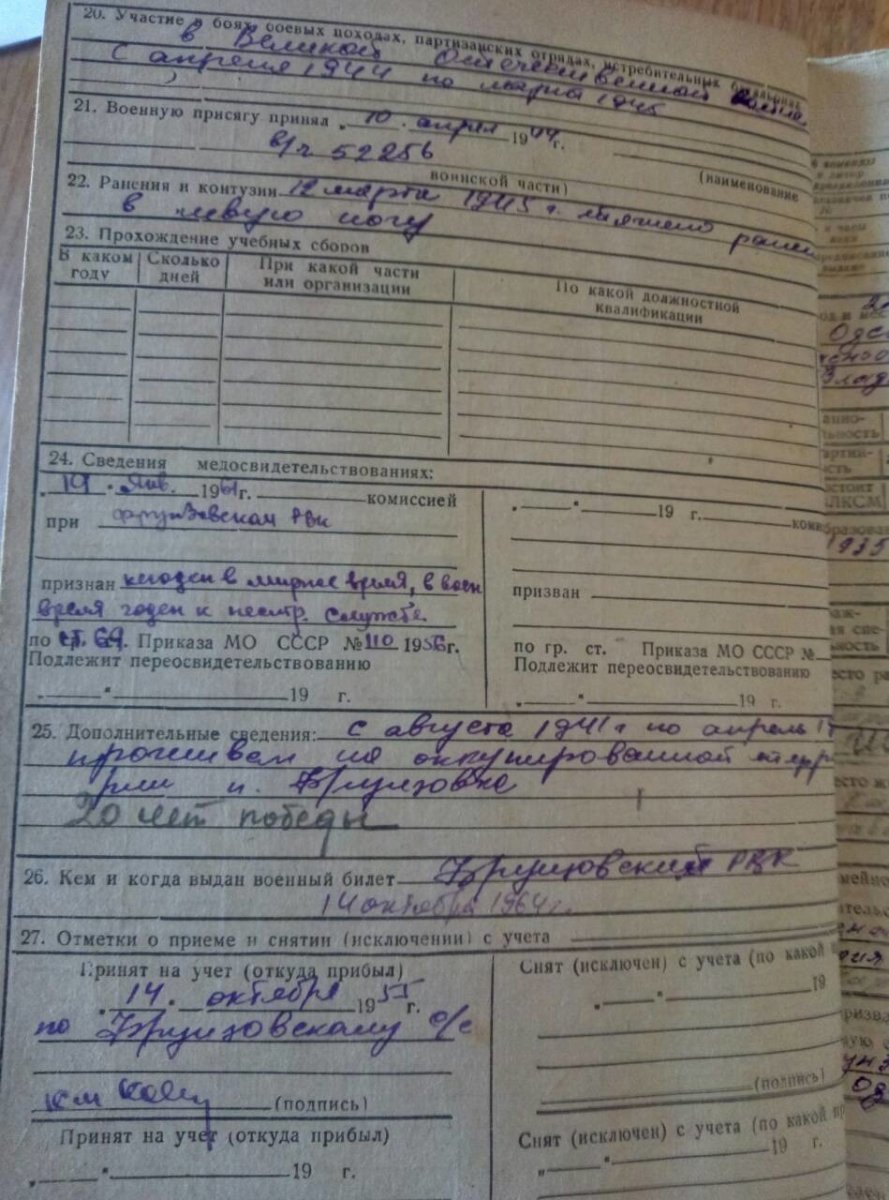 20. Участие в боях, боевых походах, партизанских отрядах, истребительных
в Великой Отечественной
с апреля 1944 по март 1945
21. Военную присягу принял „10" апреля 1944г.
в/ч 52256
(наименование
воинской части)
22. Ранения и контузии 12 марта 1945 г. ранен
в левую ногу
23. Прохождение учебных сборов
В каком году
Сколько дней
При какой части или организации
По какой должностной квалификации
24. Сведения медосвидетельствованиях:
„19" Янв. 1961г. комиссией
при Фрунзовском РВК
признан негоден в мирное время, в воен
время годен к нестр. службе
по ст. 69. Приказа МО СССР № 110 1956г.
Подлежит переосвидетельствованию
„ " 19 г.
„ " 19 г. коми
призван
по гр. ст. Приказа МО СССР №
Подлежит переосвидетельствованию
„ " 19 г.
25. Дополнительные сведения: с августа 1941г по апрель
проживал на оккупированной терр
рии н. Фрунзовке
20 лет победы
26. Кем и когда выдан военный билет Фрунзовский РВК
14 октября 1964г.
27. Отметки о приеме и снятии (исключении) с учета
Принят на учет (откуда прибыл)
„14" октября 1955 г.
по Фрунзовскому с/с
(подпись)
Принят на учет (откуда прибыл)
„ " 19 г.
Снят (исключен) с учета (по какой
„ " 19
(подпись)
Снят (исключен) с учета (по какой
„ " 19 г.